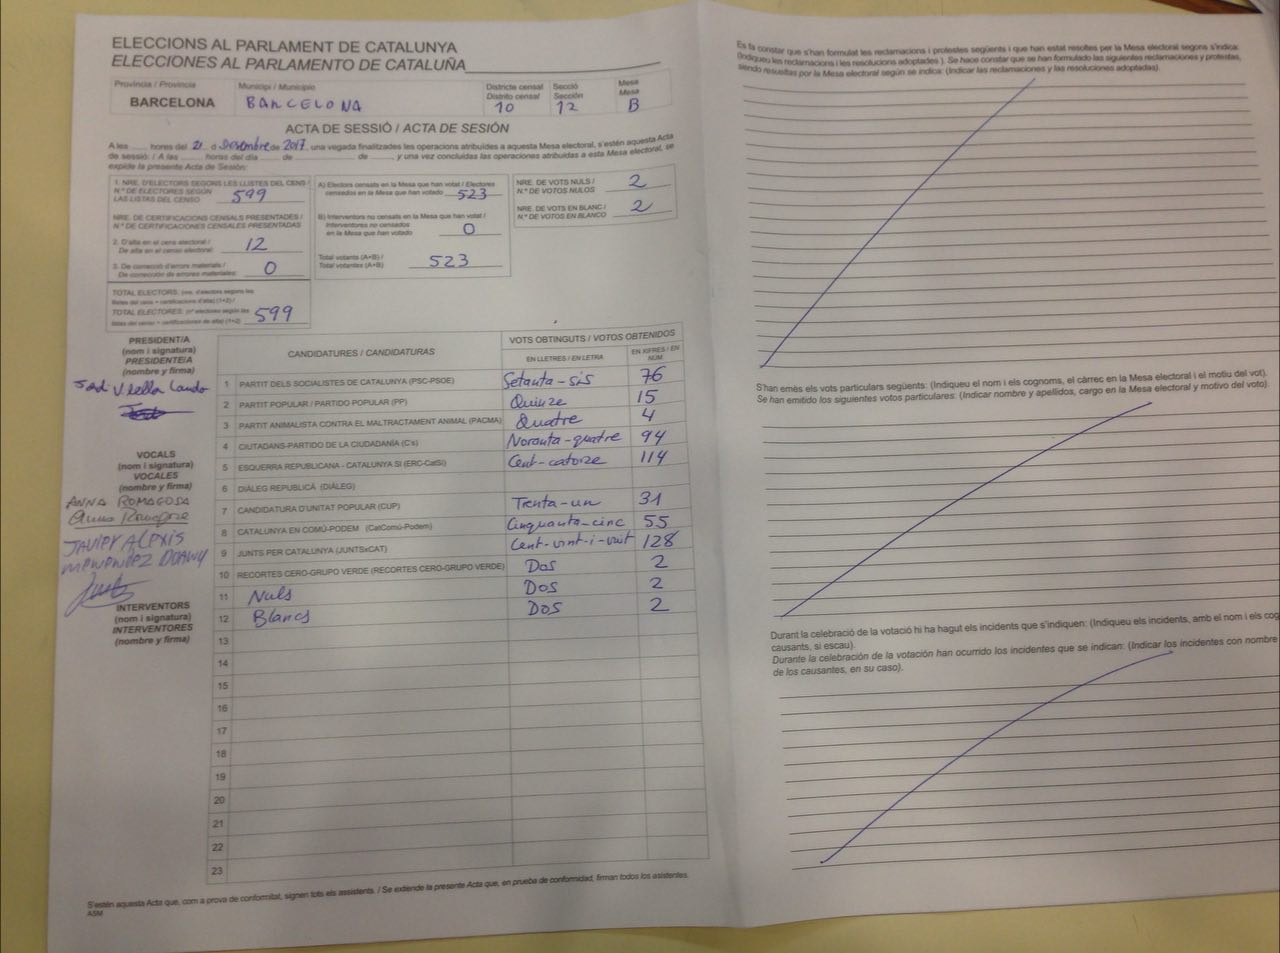 ELECCIONS AL PARLAMENT DE CATALUNYA
ELECCIONES AL PARLAMENTO DE CATALUÑA
Provincia / Provincia
BARCELONA
Municipi / Municipio
BARCELONA
Districte censal
Distrito censal
10
Secció
Sección
12
Mesa
Mesa
B
ACTA DE SESSIÓ / ACTA DE SESIÓN
A les ____ hores del 21 d Desembre de 2017, una vegada finalitzades les operacions atribuïdes a aquesta Mesa electoral, s'estén aquesta Acta
de sessió. / A las ____ horas del día ____ de ____ de ____, y una vez concluidas las operaciones atribuidas a esta Mesa electoral, se
expide la presente Acta de Sesión:
1. NRE. D'ELECTORS SEGONS LES LLISTES DEL CENS /
N.º DE ELECTORES SEGÚN
LAS LISTAS DEL CENSO 599
NRE. DE CERTIFICACIONS CENSALS PRESENTADES /
N.º DE CERTIFICACIONES CENSALES PRESENTADAS
2. D'alta en el cens electoral /
De alta en el censo electoral: 12
3. De correcció d'errors materials /
De corrección de errores materiales: 0
TOTAL ELECTORS: (nre. d'electors segons les
llistes del cens + certificacions d'alta) (1+2) /
TOTAL ELECTORES: (nº electores según las
listas del censo + certificaciones de alta) (1+2) 599
A) Electors censats en la Mesa que han votat / Electores
censados en la Mesa que han votado 523
B) Interventors no censats en la Mesa que han votat /
Interventores no censados
en la Mesa que han votado 0
Total votants (A+B) /
Total votantes (A+B) 523
NRE. DE VOTS NULS /
N.º DE VOTOS NULOS 2
NRE. DE VOTS EN BLANC /
N.º DE VOTOS EN BLANCO 2
PRESIDENT/A
(nom i signatura)
PRESIDENTE/A
(nombre y firma)
VOCALS
(nom i signatura)
VOCALES
(nombre y firma)
ANNA ROMAGOSA
JAVIER ALEXIS
INTERVENTORS
(nom i signatura)
INTERVENTORES
(nombre y firma)
CANDIDATURES / CANDIDATURAS
VOTS OBTINGUTS / VOTOS OBTENIDOS
EN LLETRES / EN LETRA
EN XIFRES / EN NÚM
1 PARTIT DELS SOCIALISTES DE CATALUNYA (PSC-PSOE) Setanta-sis 76
2 PARTIT POPULAR / PARTIDO POPULAR (PP) Quinze 15
3 PARTIT ANIMALISTA CONTRA EL MALTRACTAMENT ANIMAL (PACMA) Quatre 4
4 CIUTADANS-PARTIDO DE LA CIUDADANÍA (C's) Noranta-quatre 94
5 ESQUERRA REPUBLICANA - CATALUNYA SÍ (ERC-CatSí) Cent-catorze 114
6 DIÀLEG REPUBLICÀ (DIÀLEG)
7 CANDIDATURA D'UNITAT POPULAR (CUP) Trenta-un 31
8 CATALUNYA EN COMÚ-PODEM (CatComú-Podem) Cinquanta-cinc 55
9 JUNTS PER CATALUNYA (JUNTSxCAT) Cent-vint-i-vuit 128
10 RECORTES CERO-GRUPO VERDE (RECORTES CERO-GRUPO VERDE) Dos 2
11 Nuls Dos 2
12 Blancs Dos 2
13
14
15
16
17
18
19
20
21
22
23
S'estén aquesta Acta que, com a prova de conformitat, signen tots els assistents. / Se extiende la presente Acta que, en prueba de conformidad, firman todos los asistentes.
ASM
Es fa constar que s'han formulat les reclamacions i protestes següents i que han estat resoltes per la Mesa electoral segons s'indica:
(Indiqueu les reclamacions i les resolucions adoptades). Se hace constar que se han formulado las siguientes reclamaciones y protestas,
siendo resueltas por la Mesa electoral según se indica: (Indicar las reclamaciones y las resoluciones adoptadas).
S'han emès els vots particulars següents: (Indiqueu el nom i els cognoms, el càrrec en la Mesa electoral i el motiu del vot).
Se han emitido los siguientes votos particulares: (Indicar nombre y apellidos, cargo en la Mesa electoral y motivo del voto).
Durant la celebració de la votació hi ha hagut els incidents que s'indiquen: (Indiqueu els incidents, amb el nom i els cog
causants, si escau).
Durante la celebración de la votación han ocurrido los incidentes que se indican: (Indicar los incidentes con nombre
de los causantes, en su caso).